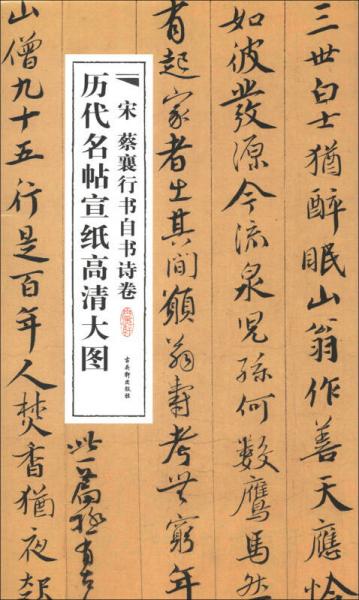 三世白士猶醉眠山翁作善天應怜
如彼發源今流泉児孫何數鷹馬然
有起家者出其間願翁壽考無窮年
宋 蔡襄行书自书诗卷
古吴轩出版社
历代名帖宣纸高清大图
此一篇極有古
山僧九十五行是百年人焚香猶夜起